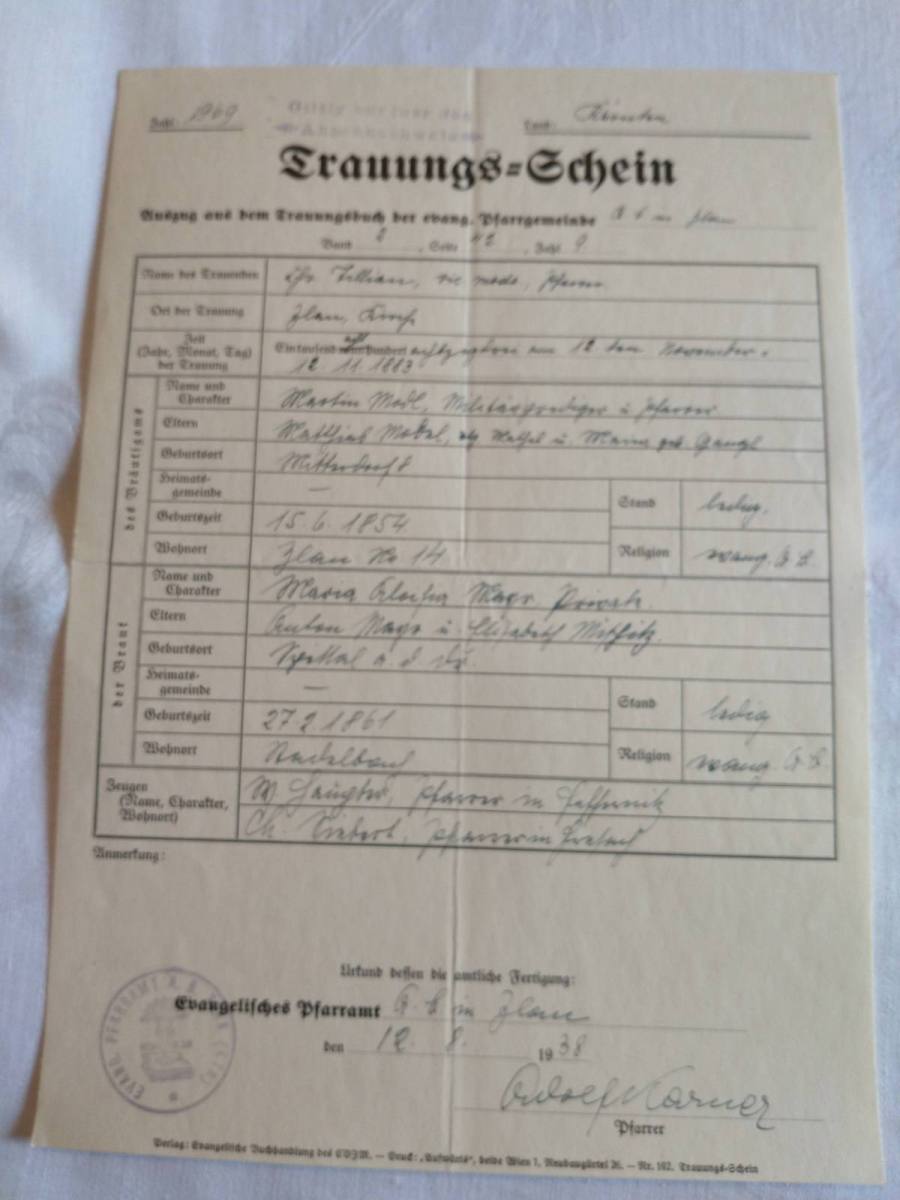 Zahl: 1969
Gültig nur für den
Ahnennachweis
Land: Kärnten
Trauungs=Schein
Auszug aus dem Trauungsbuch der evang. Pfarrgemeinde A. B. in Zlan
Band 2, Seite 42, Zahl 9
Name des Trauenden Pfarrer
Ort der Trauung Zlan, Kirche
Zeit (Jahr, Monat, Tag) der Trauung Eintausend acht hundert achtzigdrei am 12. ten November.
12. 11. 1883
des Bräutigams
Name und Charakter Martin Modl, Militärprediger u. Pfarrer
Eltern Matthias u. Maria geb. Gangl
Geburtsort Mitterdorf
Heimats-gemeinde —
Stand ledig.
Geburtszeit 15. 6. 1854
Wohnort Zlan No 14
Religion evang. A. B.
der Braut
Name und Charakter Maria Mayr Private
Eltern Anton Mayr u. Elisabeth
Geburtsort Spittal a. d. Dr.
Heimats-gemeinde —
Stand ledig
Geburtszeit 27. 2. 1861
Wohnort
Religion evang. A. B.
Zeugen (Name, Charakter, Wohnort) Pfarrer in Feffernitz
Ch. Siebert, Pfarrer in
Anmerkung:
Urkund dessen die amtliche Fertigung:
Evangelisches Pfarramt A. B. in Zlan
den 12. 8. 1938
EVANG. PFARRAMT A. B.
Adolf Karner
Pfarrer
Verlag: Evangelische Buchhandlung des CVJM. — Druck: „Aufwärts“, beide Wien 7, Neubaugürtel 26. — Nr. 102. Trauungs-Schein